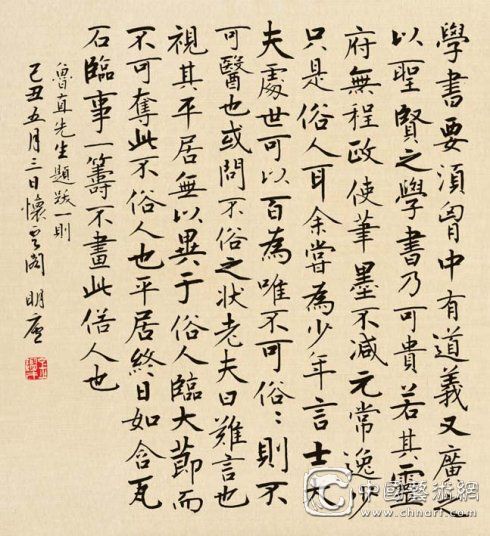 學書要須胷中有道義又廣之
以聖賢之學書乃可貴若其靈
府無程政使筆墨不減元常逸少
只是俗人耳余嘗為少年言士大
夫處世可以百為唯不可俗〻則不
可醫也或問不俗之狀老夫曰難言也
視其平居無以異于俗人臨大節而
不可奪此不俗人也平居終日如含瓦
石臨事一籌不畫此俗人也
魯直先生題跋一則
己丑五月三日懷雲閣明廬
中國藝術網
www.chnart.com